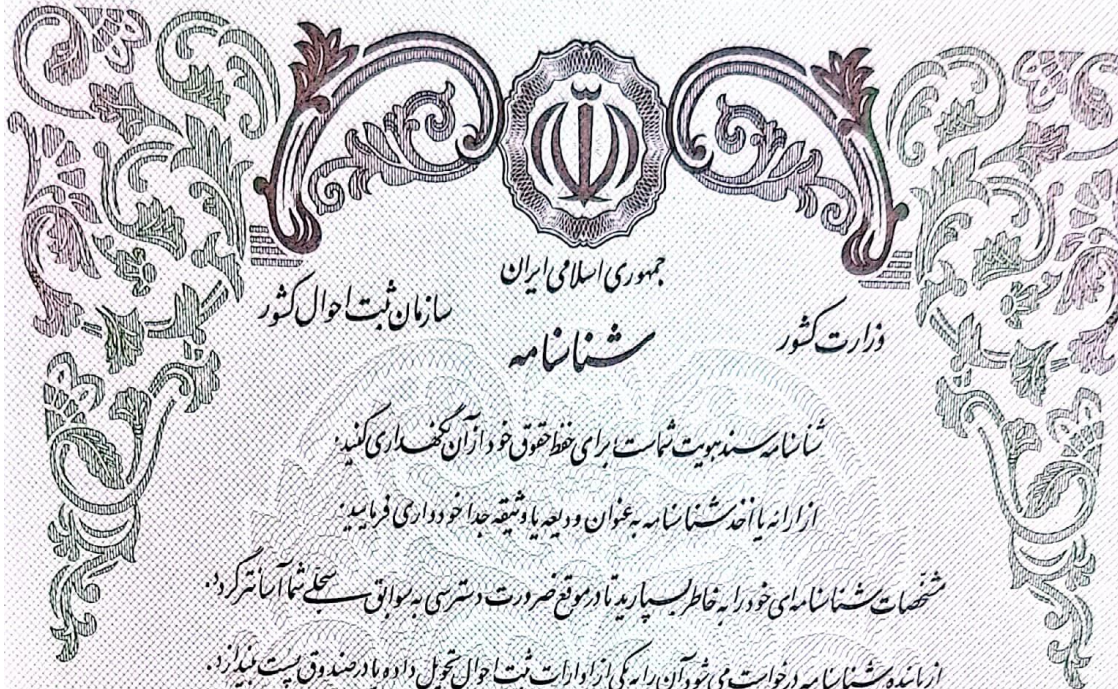 جمهوری اسلامی ایران
وزارت کشور
سازمان ثبت احوال کشور
شناسنامه
شناسنامه سند هویت شماست برای حفظ حقوق خود از آن نگهداری کنید.
از ارائه یا أخذ شناسنامه به عنوان ودیعه یا وثیقه جدا خودداری فرمایید.
مشخصات شناسنامه‌ای خود را به خاطر بسپارید تا در موقع ضرورت دسترسی به سوابق سجلی شما آسانتر گردد.
از یابنده شناسنامه درخواست می شود آن را به یکی از ادارات ثبت احوال تحویل داده یا در صندوق پست بیندازد.